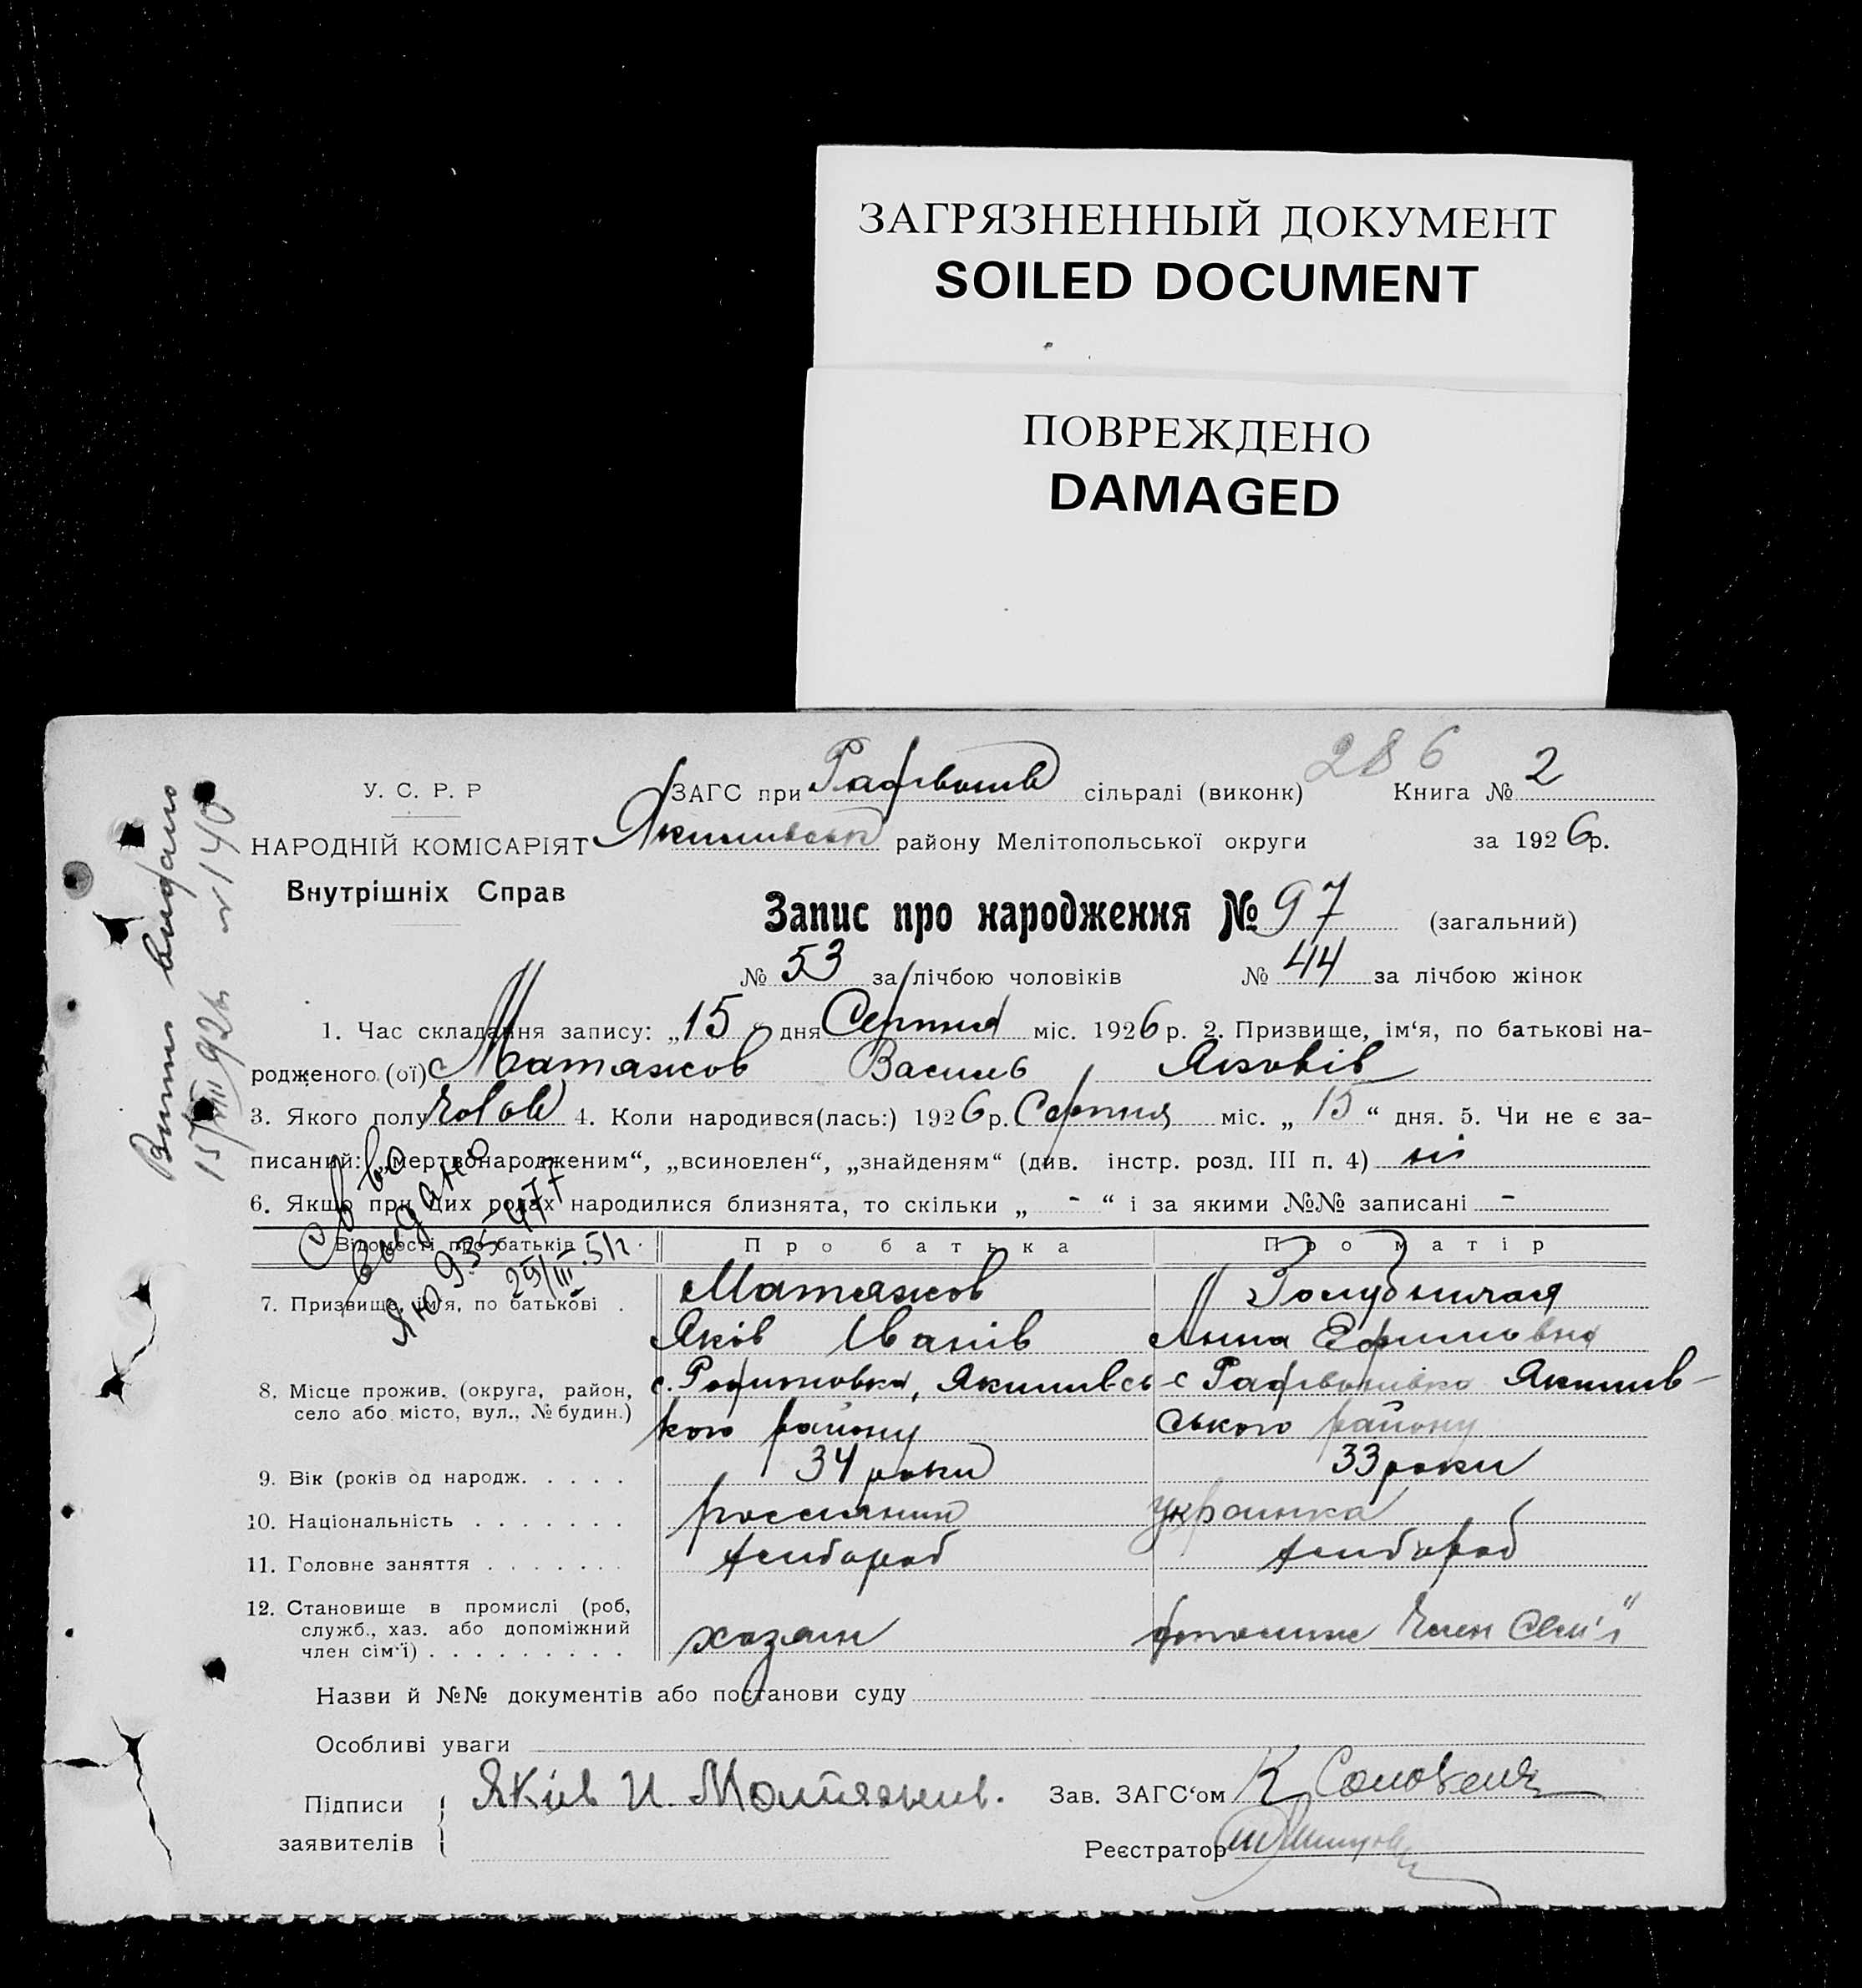 ЗАГРЯЗНЕННЫЙ ДОКУМЕНТ
SOILED DOCUMENT
ПОВРЕЖДЕНО
DAMAGED
286
У. С. Р. Р
ЗАГС при сільраді (виконк) Книга № 2
НАРОДНІЙ КОМІСАРІЯТ Якимивськ району Мелітопольської округи за 1926р.
Внутрішніх Справ
Запис про народження № 97 (загальний)
№ 53 за лічбою чоловіків № 44 за лічбою жінок
1. Час складання запису: „15“ дня Серпня міс. 1926 р. 2. Призвище, ім‘я, по батькові на-
родженого (ої) Матяжов Василь Яковів
3. Якого полу 4. Коли народився(лась:) 1926 р. Серпня міс. „ 15 “ дня. 5. Чи не є за-
писаний: „мертвонародженим“, „всиновлен“, „знайденям“ (див. інстр. розд. III п. 4) ні
6. Якщо при цих родах народилися близнята, то скільки „ - “ і за якими №№ записані -
Відомості про батьків Про батька Про матір
7. Призвище, ім‘я, по батькові . Матяжов
Яків Іванів Анна Ефимовна
8. Місце прожив. (округа, район, с. Якимівсь с Якимів-
село або місто, вул., № будин.) кого району ського району
9. Вік (років од народж. . . . . 34 роки 33 роки
10. Національність . . . . . . . россиянин украинка
11. Головне заняття . . . . . . . хлибороб хлибороб
12. Становище в промислі (роб, служб., хаз. або допоміжний член сім‘ї) . . . . . . . . . хазяин член
Назви й №№ документів або постанови суду
Особливі уваги
Підписи заявителів Яків И. Зав. ЗАГС‘ом К
Реєстратор
видано
№ 140
Св во
видано
ЯЮ 935477
25/III.51г.